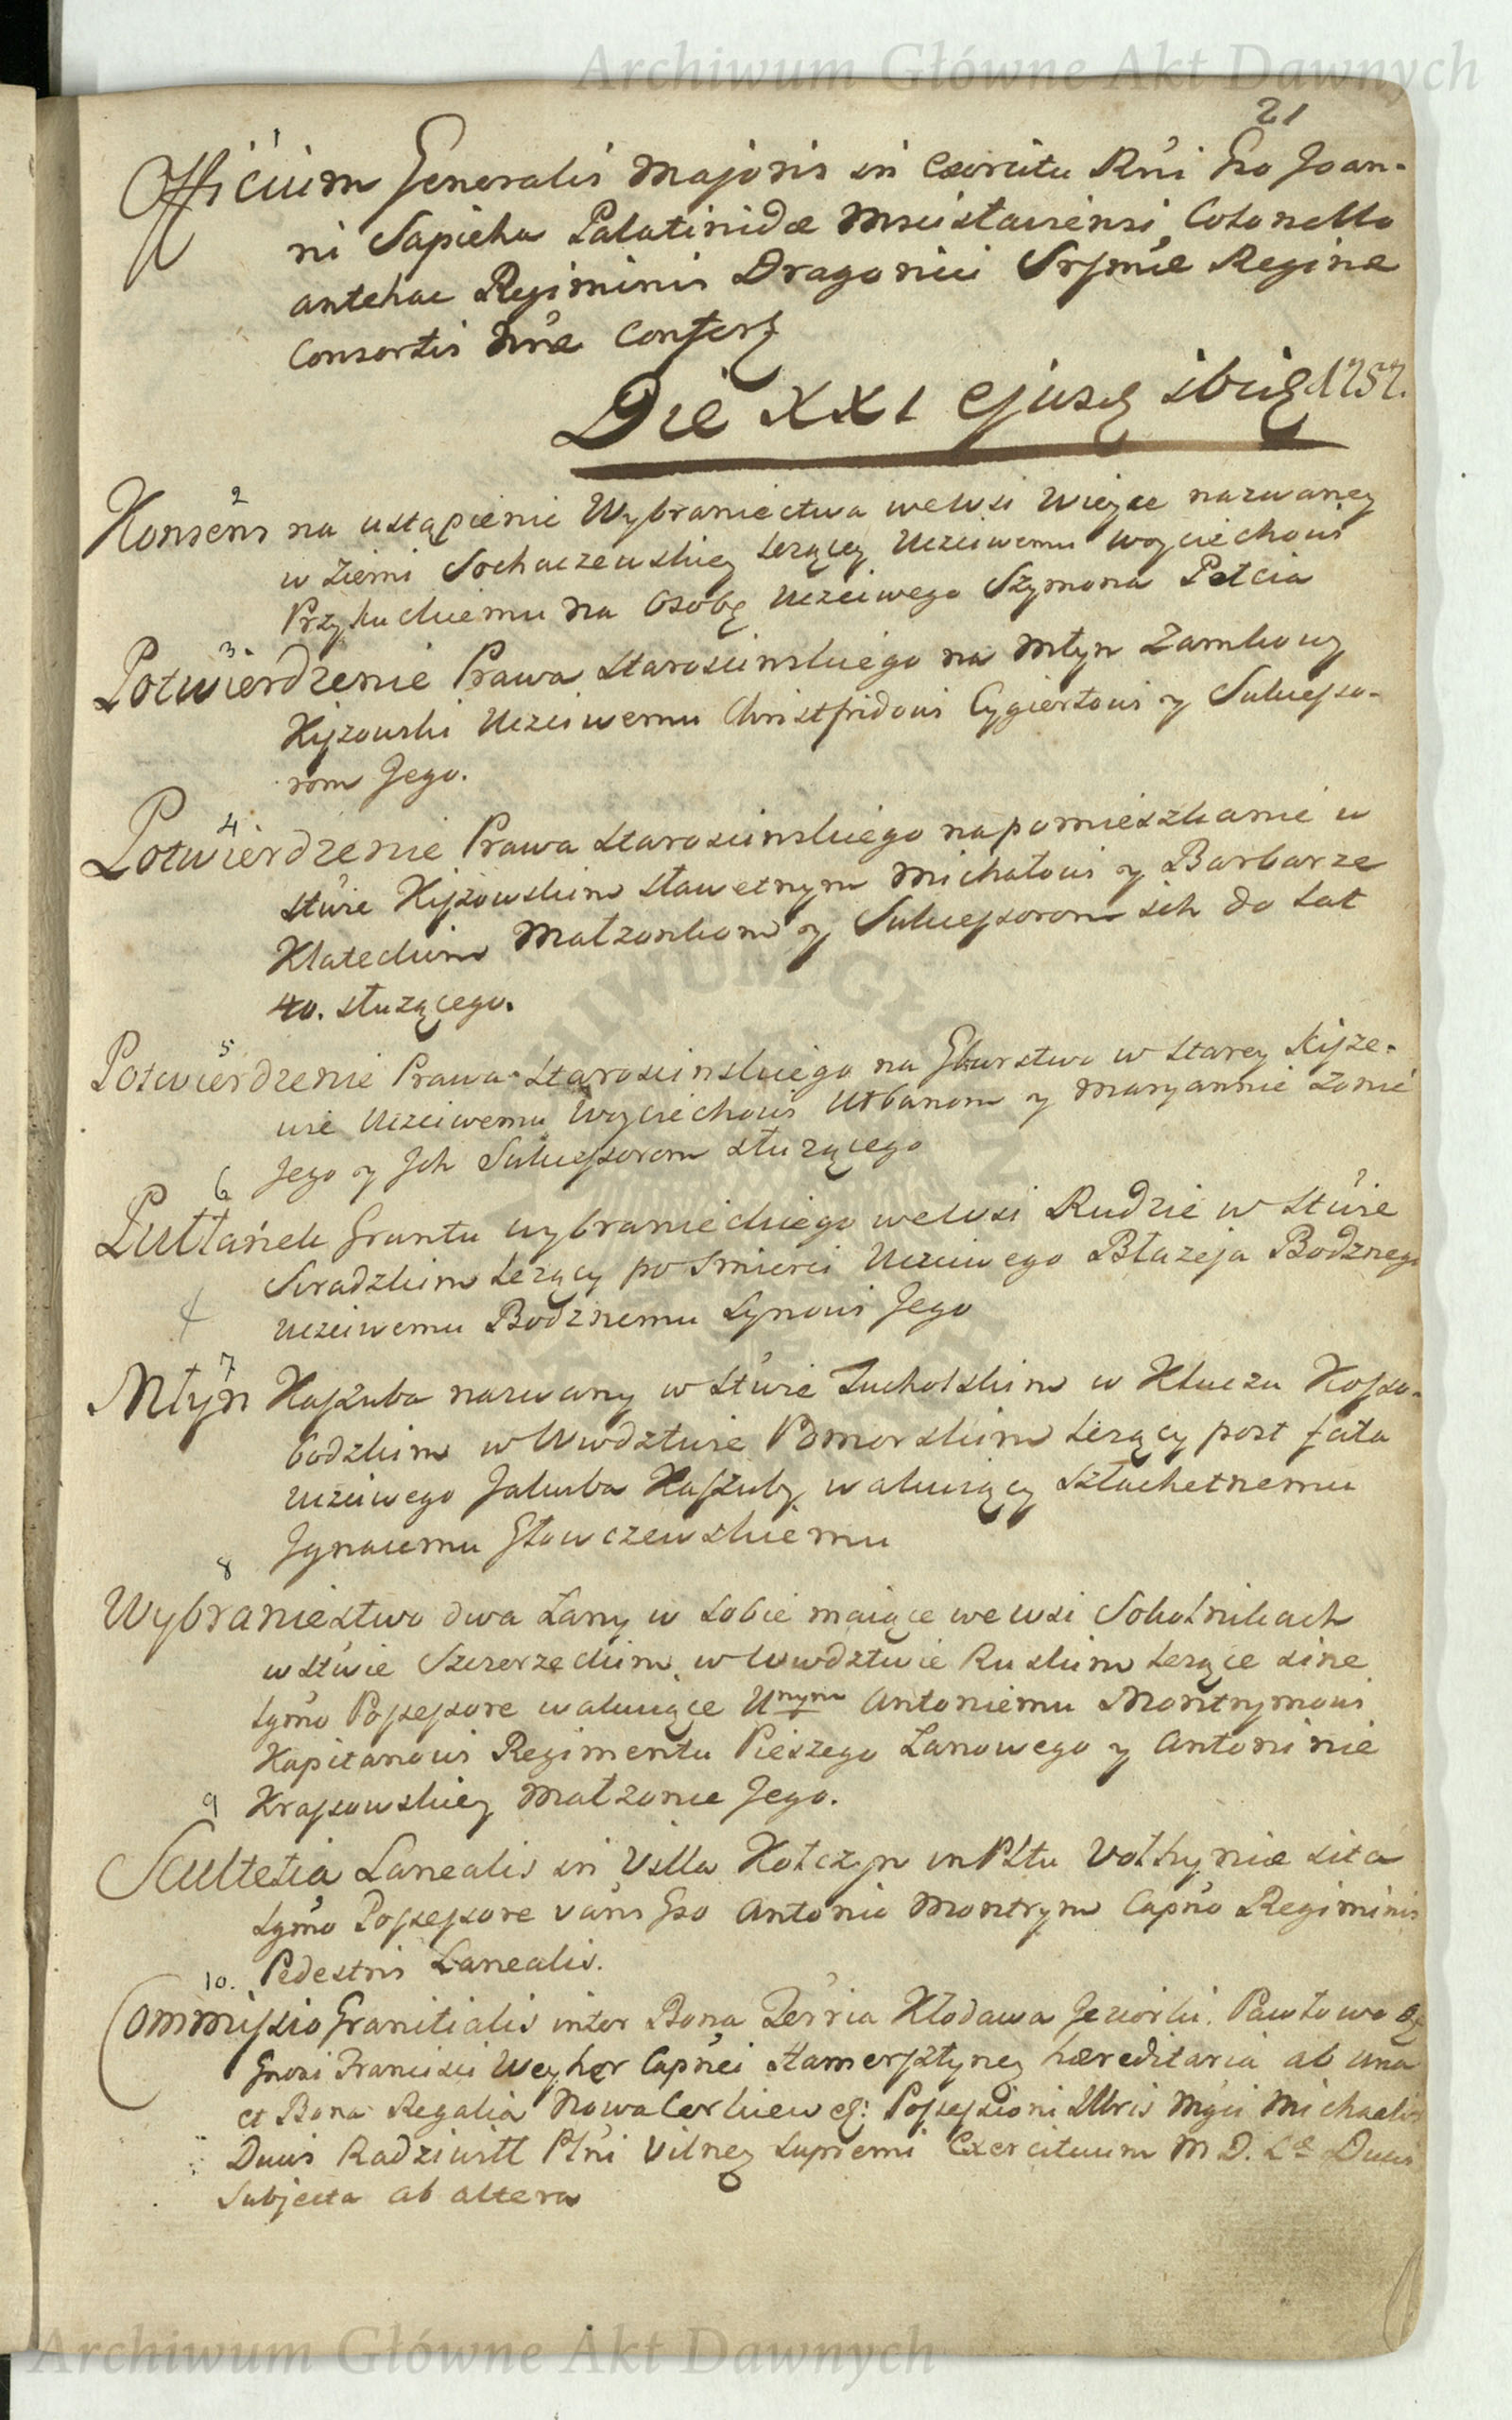 Archiwum Główne Akt Dawnych
21
1
Officium Generalis Majoris in Exercitu Rni Gso Joan-
ni Sapieha Palatinidæ Mscislaviensi, Colonello
antehac Regiminis Dragonici Srsmæ Reginæ
Consortis Nræ Confert
Die XXI ejusd ibid 1757.
2
Konsens na ustąpienie Wybraniectwa we Wsi Wiejce nazwaney
w Ziemi Sochaczewskiey leżącey Uczciwemu Woyciechowi
Przyłuckiemu na Osobę Uczciwego Szymona Petcia
3.
Potwierdzenie Prawa Starościnskiego na Młyn Zamkowy
Kiszowski Uczciwemu Christfridowi Cygiertowi y Sukcesso-
rom Jego.
4.
Potwierdzenie Prawa Starościnskiego na pomieszkanie w
Stwie Kiszowskim Sławetnym Michałowi y Barbarze
Klateckim Małżonkom y Sukcessorom ich do lat
40. służącego.
5
Potwierdzenie Prawa Starościnskiego na Gburstwo w Starey Kisze-
wie Uczciwemu Woyciechowi Urbanom y Maryannie Żonie
Jego y Jch Sukcessorom służącego
6
Pułłanek Gruntu wybranieckiego we Wsi Rudzie w Stwie
Siradzkim leżący po śmierci Uczciwego Błażeja Bodznego
Uczciwemu Bodznemu Synowi Jego
7
Młyn Kaszuba nazwany w Stwie Tucholskim w Kluczu Kosso-
bodzkim w Wwdztwie Pomorskim leżący post fata
Uczciwego Jakuba Kaszuby wakuiący Szlachetnemu
Jgnacemu Głowczewskiemu
8
Wybraniestwo dwa Łany w sobie maiące we wsi Sokolnikach
w Stwie Szczerzeckim w Wwdztwie Ruskim leżące sine
lgmo Possessore wakuiące Unym Antoniemu Montrymowi
Kapitanowi Regimentu Pieszego Łanowego y Antoninie
Krassowskiey Małżonce Jego.
9
Scultetia Lanealis in Villa Kołczyn in Pttu Volhyniæ sita
lgmo Possessore vans Gso Antonio Montrym Capno Regiminis
Pedestris Lanealis.
10.
Commissio Granitialis inter Bona Terria Kłodawa Jeziorki. Pawłowo &
Gnosi Francisci Weyher Capnei Hamersztyney hæreditaria ab una
et Bona Regalia Nowa Cerkiew &: Possessioni Illris Mgci Michaelis
Ducis Radziwiłł Plni Vilneg Supremi Exercituum M. D. L. Ducis
Subjecta ab altera
Archiwum Główne Akt Dawnych